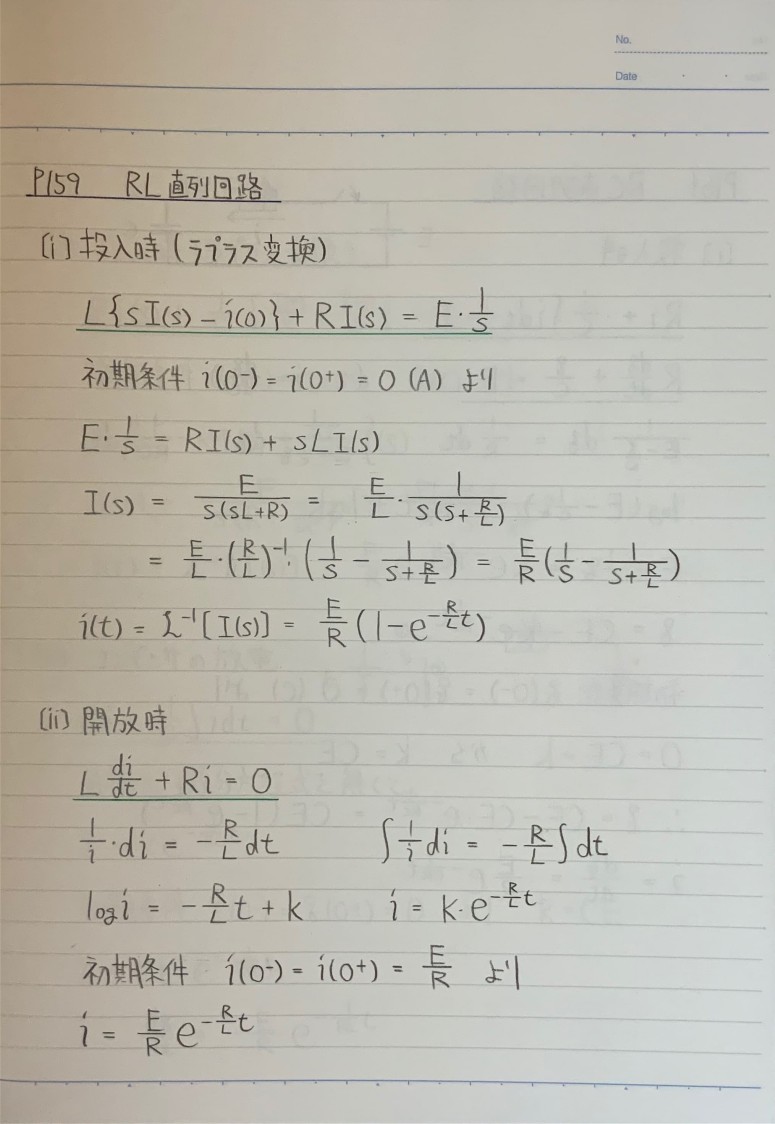 No.
Date
P159 RL直列回路
(i) 投入時(ラプラス変換)
L{sI(s) − i(0)} + RI(s) = E・1/s
初期条件 i(0-) = i(0+) = 0 (A) より
E・1/s = RI(s) + sLI(s)
I(s) = E/(s(sL+R)) = E/L・1/(s(s+R/L))
= E/L・(R/L)^-1・(1/s − 1/(s+R/L)) = E/R(1/s − 1/(s+R/L))
i(t) = ℒ^-1[I(s)] = E/R(1−e^(-R/L t))
(ii) 開放時
L di/dt + Ri = 0
1/i・di = −R/L dt ∫1/i di = −R/L∫dt
log i = −R/L t + k i = k・e^(-R/L t)
初期条件 i(0-) = i(0+) = E/R より
i = E/R e^(-R/L t)